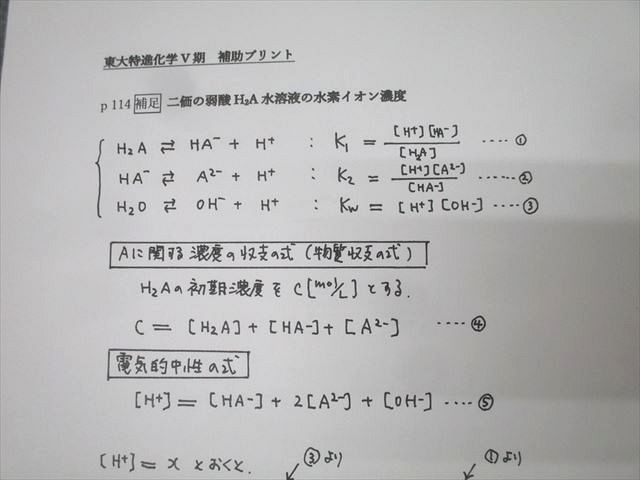 東大特進化学Ⅴ期　補助プリント
p 114 補足 二価の弱酸 H₂A 水溶液の水素イオン濃度
H₂A ⇄ HA⁻ + H⁺ : K₁ = [H⁺][HA⁻] / [H₂A] ‥‥ ①
HA⁻ ⇄ A²⁻ + H⁺ : K₂ = [H⁺][A²⁻] / [HA⁻] ‥‥‥ ②
H₂O ⇄ OH⁻ + H⁺ : Kw = [H⁺][OH⁻] ‥‥ ③
Aに関する濃度の収支の式(物質収支の式)
H₂Aの初期濃度を C[mol/L]とする.
C = [H₂A] + [HA⁻] + [A²⁻] ‥‥ ④
電気的中性の式
[H⁺] = [HA⁻] + 2[A²⁻] + [OH⁻] ‥‥ ⑤
[H⁺] = x とおくと. ③より ①より